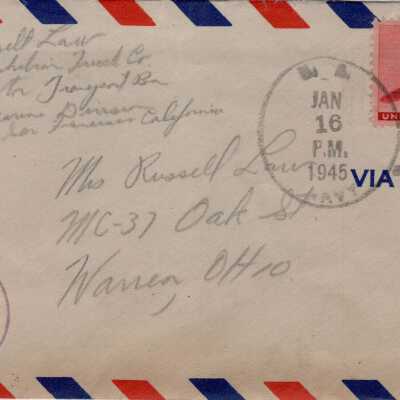 sell Law
Truck Co
tor Transport Bn
Division
San Francisco California
U. S.
JAN
16
P.M.
1945
NAVY
UN
VIA
Mrs Russell Law
MC-37 Oak St
Warren, OHIO